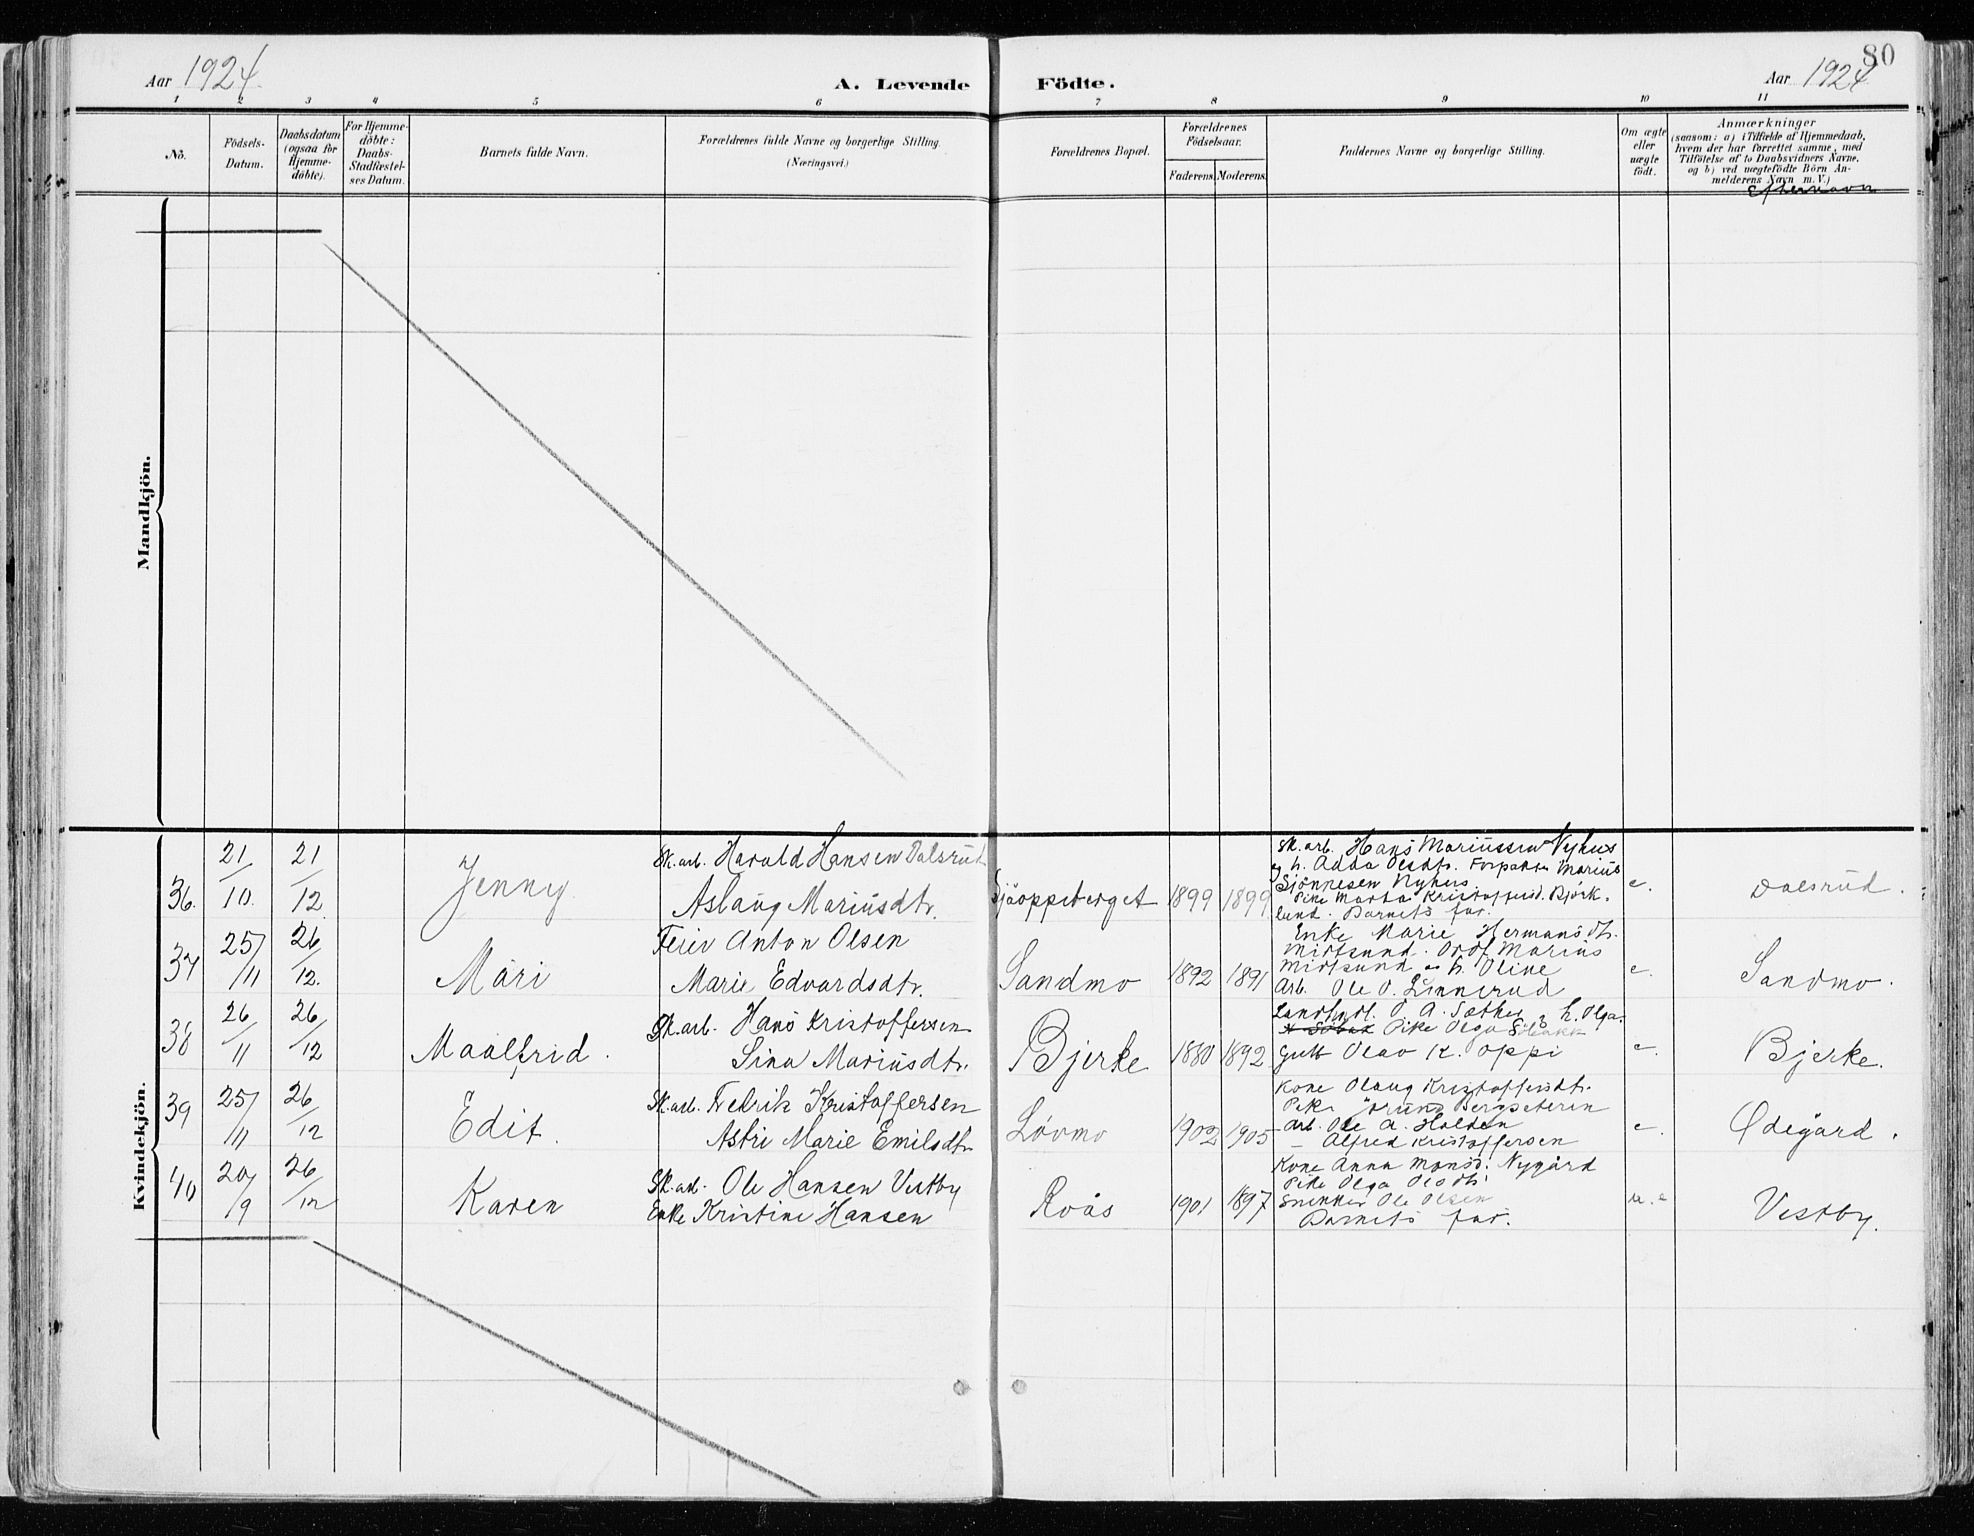 80
Aar 1924
A. Levende
Födte.
Aar 1924
1 2 3 4 5 6 7 8 9 10 11
No.
Födsels-
Datum.
Daabsdatum
(ogsaa for
Hjemme-
döbte).
For Hjemme-
döbte:
Daabs-
Stadfæstel-
ses Datum.
Barnets fulde Navn.
Forældrenes fulde Navne og borgerlige Stilling.
(Næringsvei.)
Forældrenes Bopæl.
Forældrenes
Födselsaar.
Faderens. Moderens.
Faddernes Navne og borgerlige Stilling.
Om ægte
eller
uægte
födt.
Anmærkninger
(saasom: a) i Tilfælde af Hjemmedaab,
hvem der har forrettet samme, med
Tilföielse af to Daabsvidners Navne,
og b) ved uægtefödte Börn An-
melderens Navn m. V.)
Efternavn
Mandkjön.
Kvindekjön.
36. 21/10. 21/12 Jenny
Sk. arb. Harald Hansen Dalsrud
Aslaug Mariusdtr.
1899 1899
Sk. arb. Hans Mariussen Nyhus
og h. Adda Olsdtr. Forpakter Marius
Sjönnesen Nyhus
Pike Marta Kristoffersd. Björk-
lund. Barnets far.
e.
Dalsrud.
37 25/11 26/12. Mari
Anton Olsen
Marie Edvardsdtr.
Sandmo 1892 1891
Enke Marie Hermansdtr.
Midtsund. Marius
Midtsund og h. Oline
Arb. Ole O. Linnerud
e.
Sandmo.
38 26/11 26/12 Maalfrid.
Sk. arb. Hans Kristoffersen
Lina Mariusdtr.
Bjerke 1880 1892
Landhandl. O. A. Sæther og h. Olga.
Pike Olga
Gutt Olav K. Oppi
e.
Bjerke.
39 25/11 26/12 Edit.
Sk. arb. Fredrik Kristoffersen
Astri Marie Emilsdtr.
Lövmo 1902 1905
Kone Olaug Kristoffersdtr.
Pike Bergseteren
Arb. Ole A. Holden
— Alfred Kristoffersen
e.
Ødegård.
40 20/9 26/12 Karen
Sk. arb. Ole Hansen Vestby
Enke Kristine Hansen
Roås 1901 1897
Kone Anna Monsd. Nygård
Pike Olga Olsdtr.
Snekker Ole Olsen
Barnets far.
u. e
Vestby.